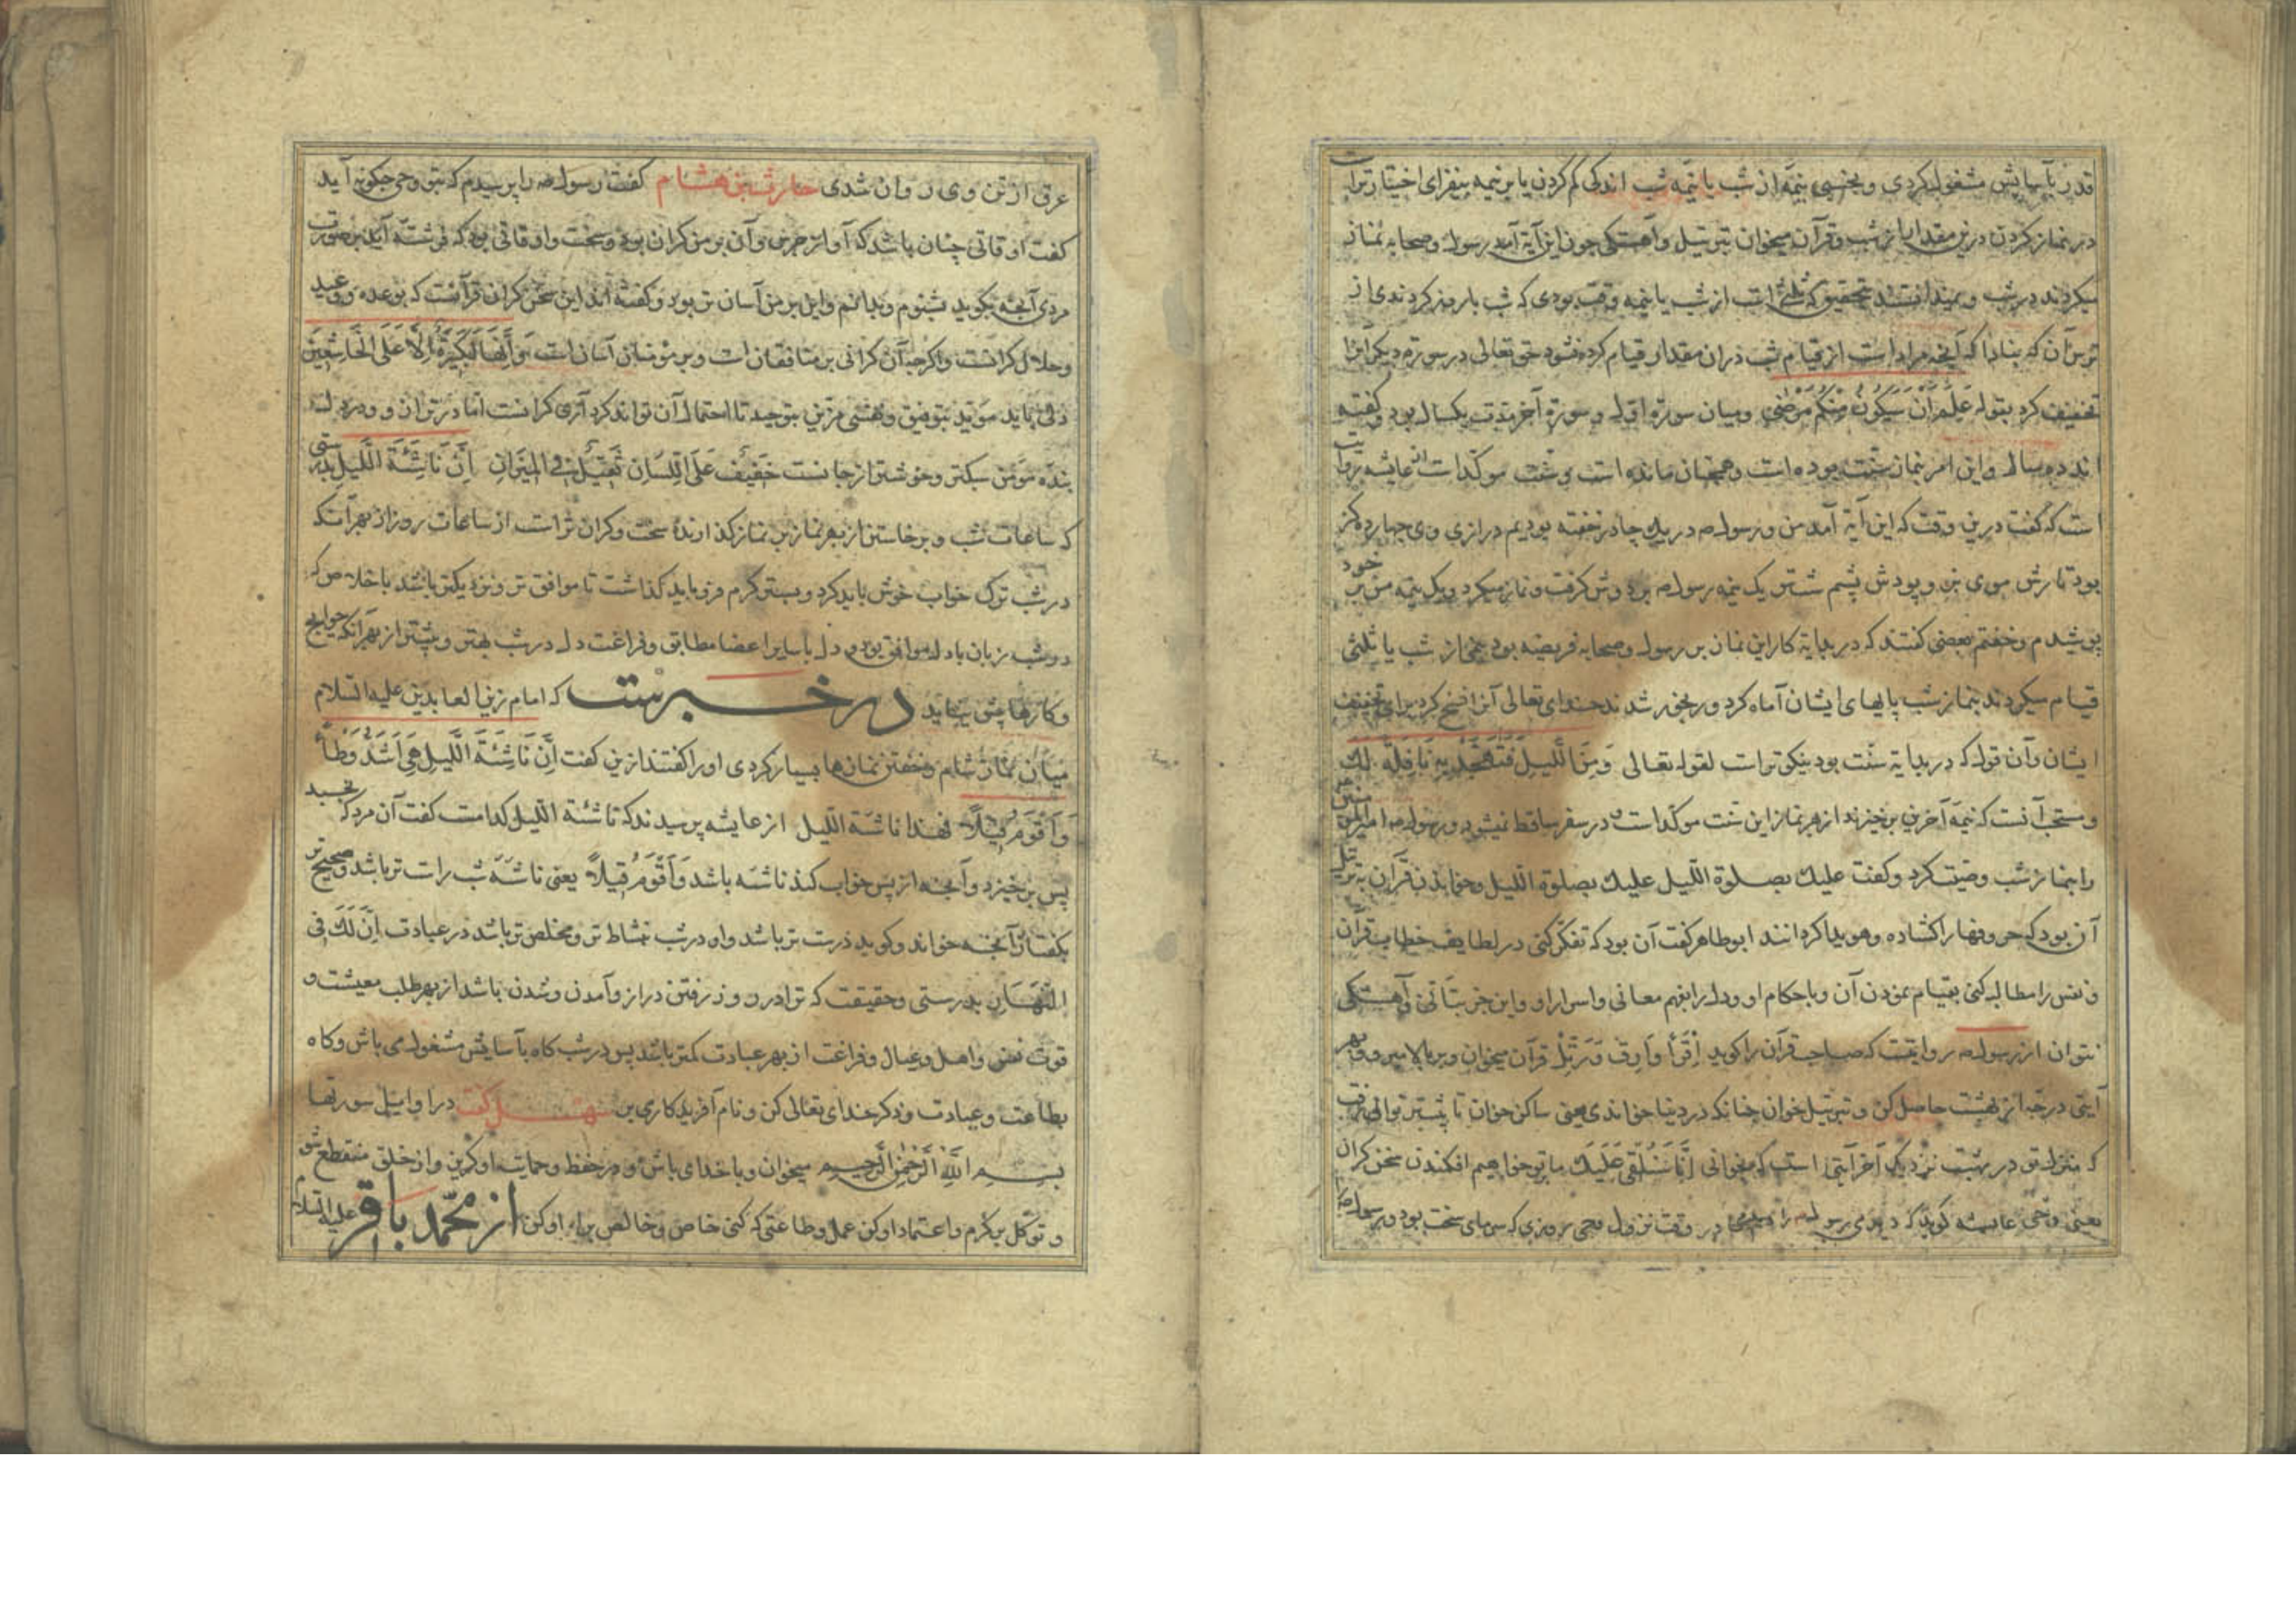 قدری بآسایش مشغول کردی و بخسبی نیمۀ از شب یا نیمۀ شب اندکی کم کردن یا بر نیمه بیفزای اختیار تراست
در نماز کردن درین مقدارها از شب و قرآن میخوان بترتیل و آهستکی چون این آیة آمد رسول و صحابه نماز
میکردند در شب و نمیدانستند بتحقیق که ثلثی است از شب یا نیمه وقت بودی که شب با روز کردندی از
ترس آن که مبادا که آنچه مراد است از قیام شب دران مقدار قیام کرده نشود حق تعالی در سورة دیکر انرا
تخفیف کرد بقوله عَلِمَ اَنْ سَیَکُونُ مِنْکُمْ مَرْضٰی و میان سورة اول و سورة آخر مدت یکسال بود و کفته
اند ده سال و این امر بنماز سنت بوده است و همچنان مانده است و سنت موکدا ست از عایشه روایت
است که کفت درین وقت که این آیة آمد من و رسول ص در یک چادر خفته بودیم درازی وی چهارده کز
بود تارش موی بز و پودش پشم شتر یک نیمه رسول ص بر دوش کرفت و نماز میکرد و یک نیمه من بر خود
پوشیدم و خفتم بعضی کفتند که در بدایة کار این نماز بر رسول و صحابه فریضه بود نیمی از شب یا ثلثی
قیام میکردند بنماز شب پایهای ایشان آماه کرد و رنجور شدند خدای تعالی آنرا فسخ کرد برای تخفیف
ایشان و آن قول که در بدایة سنت بود نیکوتر است لقوله تعالی وَمِنَ اللَّیلِ فَتَهَجَّدْ بِهِ نَافِلَةً لَكَ
و مستحب آنست که نیمۀ آخرین برخیزند از بهر نماز این سنت موکد است در سفر ساقط نمیشود و رسول ص امیر المؤمنین
را بنماز شب وصیت کرد و کفت علیك بصلوة اللیل علیك بصلوة اللیل و خواندن قرآن بترتیل
آن بود که حروفها را کشاده و هویدا کردانند ابوطاهر کفت آن بود که تفکر کنی در لطایف خطاب قرآن
و نفس را مطالبه کنی بقیام نمودن آن و باحکام او و دل را بفهم معانی و اسرار او و این جز بتأنی و آهستکی
نتوان از رسول ص روایتست که صاحب قرآن را کوید اِقْرَأْ وَارْقَ وَرَتِّلْ قرآن میخوان و بر بالا میرو و بهر
آیتی درجۀ از بهشت حاصل کن و بترتیل خوان چنانکه در دنیا خواندی یعنی ساکن خوان تا بیشتر توانی رفت
که منزل تو در بهشت نزدیک آخر آیتی است که میخوانی اِنَّا سَنُلْقِي عَلَیْكَ ما بر تو خواهیم افکندن سخن کران
یعنی وحی عایشه کوید که دیدمی رسول را ص در وقت نزول وحی در روزی که سرمای سخت بود و بر رسول ص
عرق از تن وی روان شدی حارث بن هشام کفت رسول ص را پرسیدم که بتو وحی چکونه آید
کفت اوقاتی چنان باشد که آواز جرس و آن بر من کران بود و سخت و اوقاتی بود که فرشته آید بر صورت
مردی آنچه بکوید بشنوم و بدانم و این بر من آسان تر بود و کفته اند این سخن کران قرآنست که بوعده و وعید
و حلال کرانست و اکرچه آن کرانی بر منافقان است و بر مؤمنان آسان است وَاِنَّهَا لَکَبِیرَةٌ اِلَّا عَلَی الْخَاشِعِینَ
دلی باید مؤید بتوفیق و نفسی مزین بتوحید تا احتمال آن تواند کرد آری کرانست اما در ترازو و در دل
بندۀ مؤمن سبکتر و خوشتر از جانست خَفِیفٌ عَلَی اللِّسَانِ ثَقِیلٌ فِي الْمِیزَانِ اِنَّ نَاشِئَةَ اللَّیلِ بدرستی
که ساعات شب و برخاستن از بهر نماز بر نماز کذارنده سخت و کران تر است از ساعات روز از بهر آنکه
در شب ترک خواب خوش باید کرد و بستر کرم فرو باید کذاشت تا موافق تر و نزدیکتر باشد باخلاص که
در شب زبان با دل موافق بود و دل با سایر اعضا مطابق و فراغت دل در شب بهتر و بیشتر از بهر آنکه حوایج
و کارها پیش نیاید در خبرست که امام زین العابدین علیه السلام
میان نماز شام و خفتن نمازها بسیار کردی او را کفتند ازین کفت اِنَّ نَاشِئَةَ اللَّیلِ هِيَ اَشَدُّ وَطْأً
وَاَقْوَمُ قِیلاً فهذا ناشئة اللیل از عایشه پرسیدند که ناشئة اللیل کدامست کفت آن مرد که بخسبد
پس برخیزد و آنچه از پس خواب کند ناشئه باشد وَاَقْوَمُ قِیلاً یعنی ناشئۀ شب راست تر باشد و صحیح تر
بکفتار و آنچه خواند و کوید درست تر باشد و او در شب نشاط تر و مخلص تر باشد در عبادت اِنَّ لَكَ فِي
النَّهَارِ بدرستی و حقیقت که ترا در روز رفتن دراز و آمدن و شدن باشد از بهر طلب معیشت و
قوت نفس و اهل و عیال و فراغت از بهر عبادت کمتر باشد پس در شب کاه بآسایش مشغول می باش و کاه
بطاعت و عبادت و ذکر خدای تعالی کن و نام آفریدکار می بر سهل کفت در اوایل سورتها
بِسْمِ اللّٰهِ الرَّحْمٰنِ الرَّحِیمِ میخوان و با خدای باش و در حفظ و حمایت او کریز و از خلق منقطع شو
و توکل بر کرم و اعتماد او کن عمل و طاعتی که کنی خاص و خالص برای او کن از محمد باقر علیه السلام